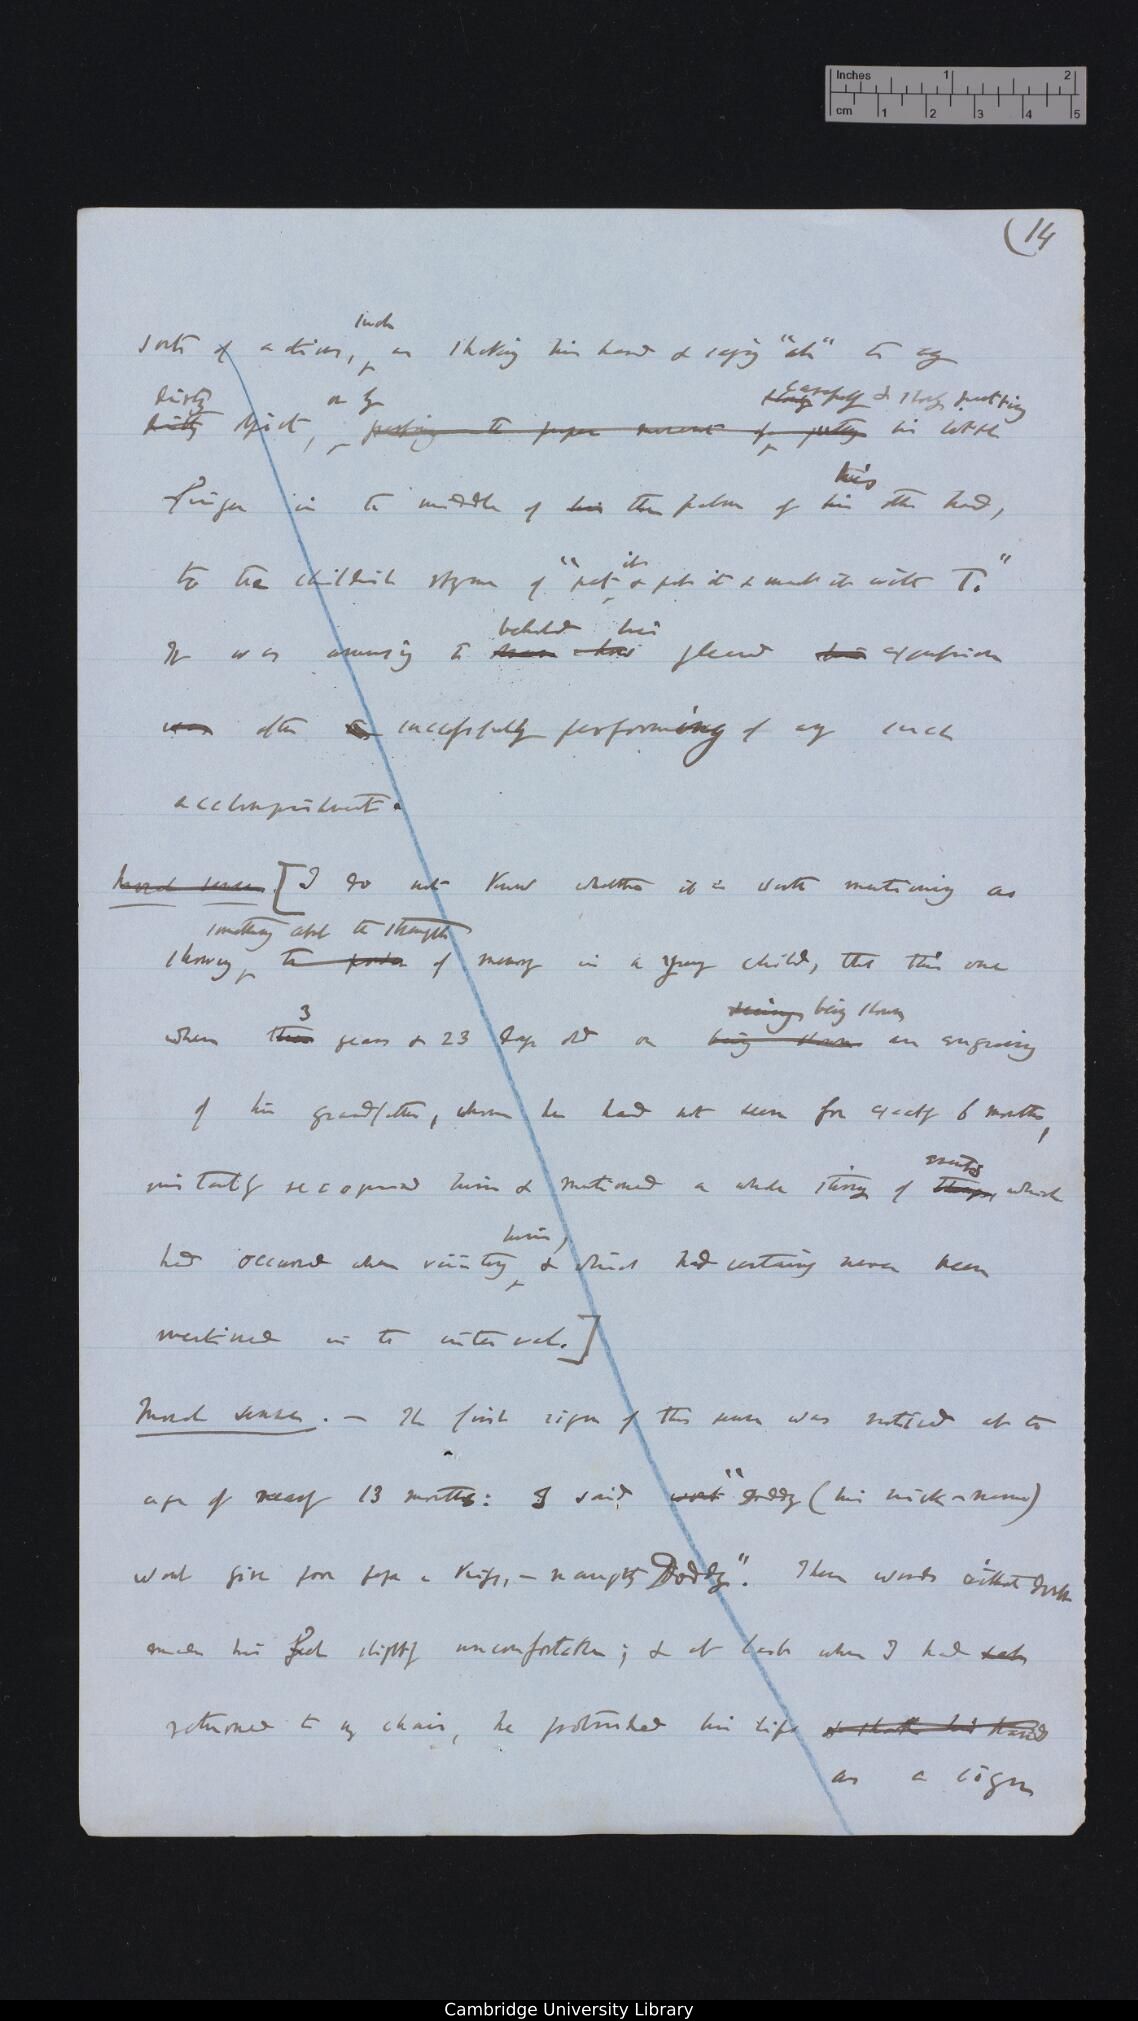 Inches 1 2
cm 1 2 3 4 5
(14
such
sorts of actions, as shaking his hand & saying "ah" to any
dirty or by carefully & slowly putting
dirty object, putting his little
finger in the middle of his the palm of his his other hand,
it
to the childish rhyme of "pat & pat it & mark it with T."
behold his
It was amusing to pleased his expression
was after successfully performing of any such
accomplishment.
Moral sense [I do not know whether it is worth mentioning as
something about the strength
showing, the power of memory in a young child, that this one
3 seeing being shown
when three years & 23 days old on being shown an engraving
of his grandfather, whom he had not seen for exactly 6 months,
events
instantly recognised him & mentioned a whole string of things, which
him,
had occurred when visiting & which had certainly never been
mentioned in the interval.]
Moral sense. — The first sign of this sense was noticed at the
age of nearly 13 months: I said wont "Doddy (his nick-name)
wont give poor papa a kiss, — naughty Doddy". These words without doubt
made him feel slightly uncomfortable; & at last when I had
returned to my chair, he protruded his lips & shook his hand
as a sign
Cambridge University Library